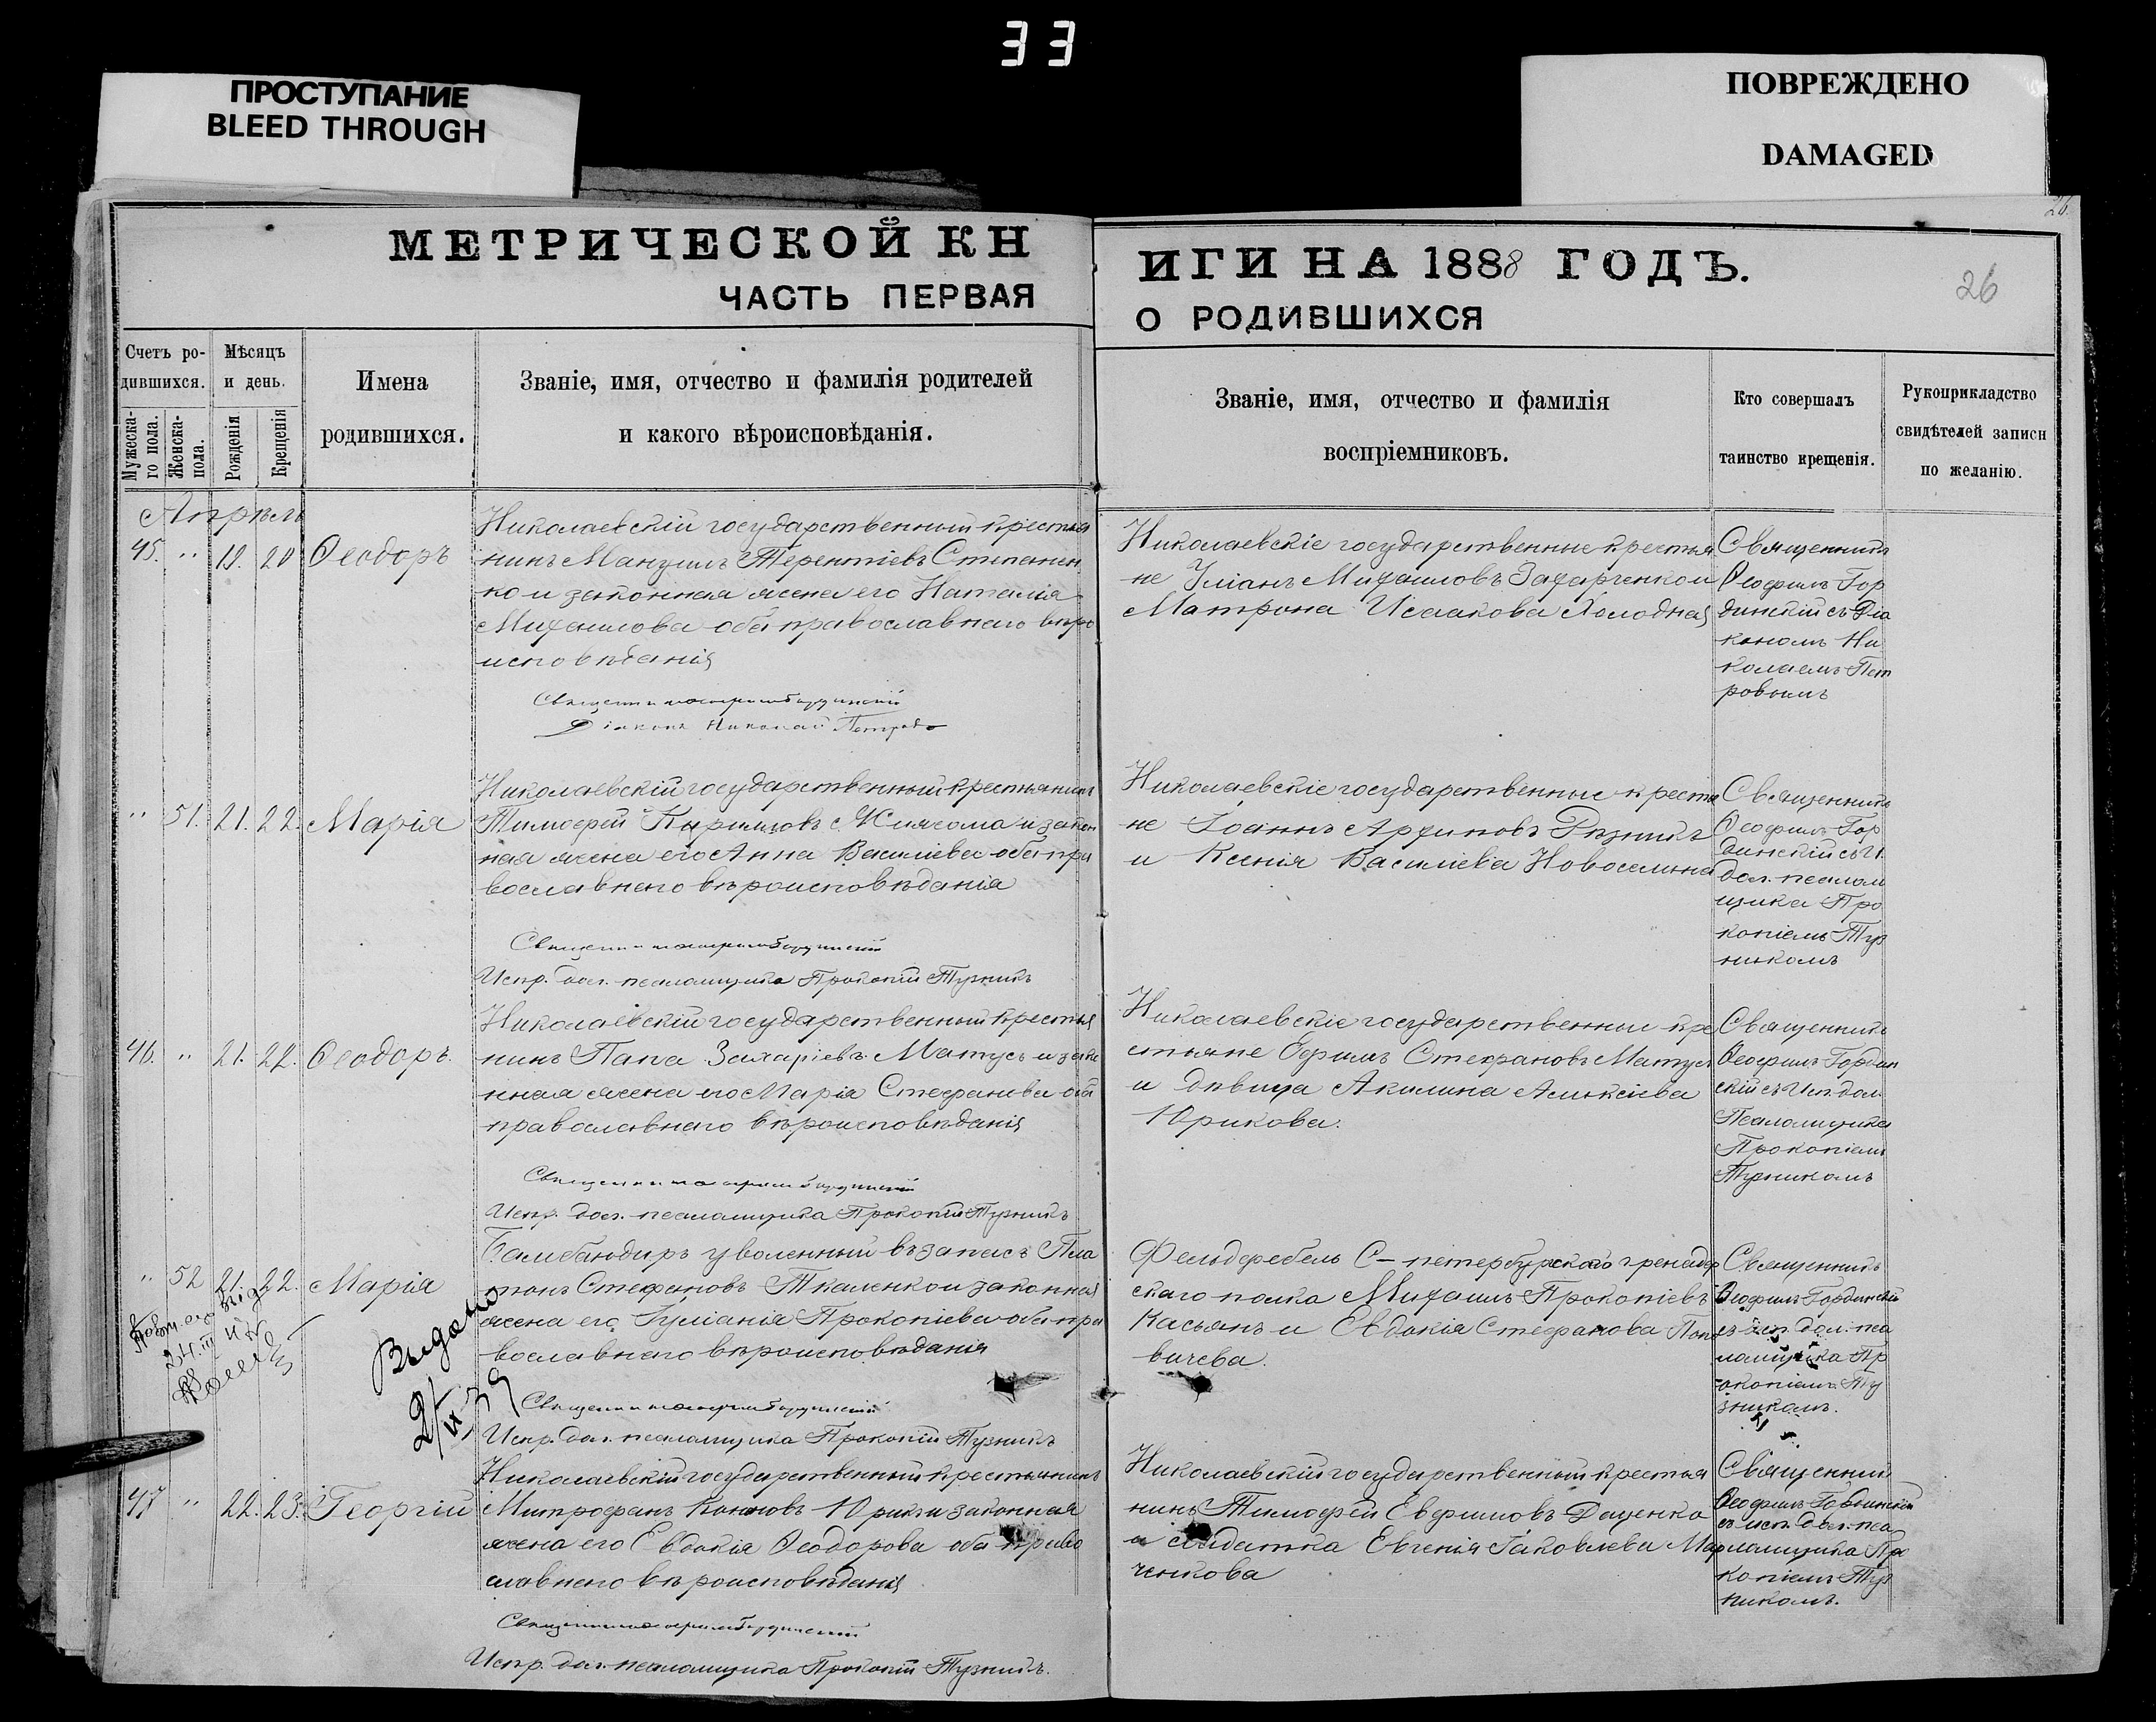 33
ПРОСТУПАНИЕ
BLEED THROUGH
ПОВРЕЖДЕНО
DAMAGED
26
МЕТРИЧЕСКОЙ КН
ИГИ НА 1888 ГОДЪ.
ЧАСТЬ ПЕРВАЯ
О РОДИВШИХСЯ
26
Счетъ ро-
дившихся.
Мужеска-
го пола.
Женска-
пола.
Мѣсяцъ
и день.
Рожденія
Крещенія
Имена
родившихся.
Званіе, имя, отчество и фамилія родителей
и какого вѣроисповѣданія.
Званіе, имя, отчество и фамилія
воспріемниковъ.
Кто совершалъ
таинство крещенія.
Рукоприкладство
свидѣтелей записи
по желанію.
Апрѣль
45. " 19. 20 Ѳеодоръ
Николаевскій государственный крестья
нинъ Мануилъ Терентіевъ Степанен
ко и законная жена его Наталія
Михаилова оба православнаго вѣро
исповѣданія
Діаконъ Николай Петровъ
Николаевскіе государственные крестья
не Уліанъ Михаиловъ Захарченко и
Матрона Исаакова Холодная
Священникъ
Ѳеофилъ Гор
динскій съ Діа
кономъ Ни
колаемъ Пет
ровымъ
" 51. 21. 22. Марія
Николаевскій государственный крестьянинъ
Тимофей Кирилловъ и закон
ная жена его Анна Василіева оба пра
вославнаго вѣроисповѣданія
Испр. дол. псаломщика Прокопій Тузникъ
Николаевскіе государственные крестья
не Іоаннъ Архиповъ Рѣзникъ
и Ксенія Василіева Новоселина
Священникъ
Ѳеофилъ Гор
динскій съ И.
дол. псалом
щика Про
копіемъ Туз
никомъ
46. " 21. 22. Ѳеодоръ.
Николаевскій государственный крестья
нинъ Папа Захаріевъ Матусъ и зако
нная жена его Марія Стефанова оба
православнаго вѣроисповѣданія
Испр. дол. псаломщика Прокопій Тузникъ
Николаевскіе государственные кре
стьяне Ефимъ Стефановъ Матусъ
и дѣвица Акилина Алексіева
Юрикова.
Священникъ
Ѳеофилъ Гордин
скій съ Исп. дол.
Псаломщика
Прокопіемъ
Тузникомъ
" 52 21. 22. Марія
Выдано
Бомбандиръ уволенный въ запасъ Пла
тонъ Стефановъ Ткаленко и законная
жена его Іуліанія Прокопіева оба пра
вославнаго вѣроисповѣданія
Испр. дол. псаломщика Прокопій Тузникъ
Фельдфебель С-петербурскаго гренадер
скаго полка Михаилъ Прокопіевъ
Касьянъ и Евдокія Стефанова Попо
вичева.
Священникъ
Ѳеофилъ Гординскій
съ исп. дол. пса
ломщика Пр
окопіемъ Ту
зникомъ.
47 " 22. 23. Георгій
Николаевскій государственный крестьянинъ
Митрофанъ Кононовъ Юрикъ и законная
жена его Евдокія Ѳеодорова оба право
славнаго вѣроисповѣданія
Испр. дол. псаломщика Прокопій Тузникъ.
Николаевскій государственный крестья
нинъ Тимофей Евфимовъ Даценко
и солдатка Евгенія Іаковлева Мар
ченкова
Священникъ
Ѳеофилъ Гординскій
съ исп. дол. пса
ломщика Про
копіемъ Туз
никомъ.